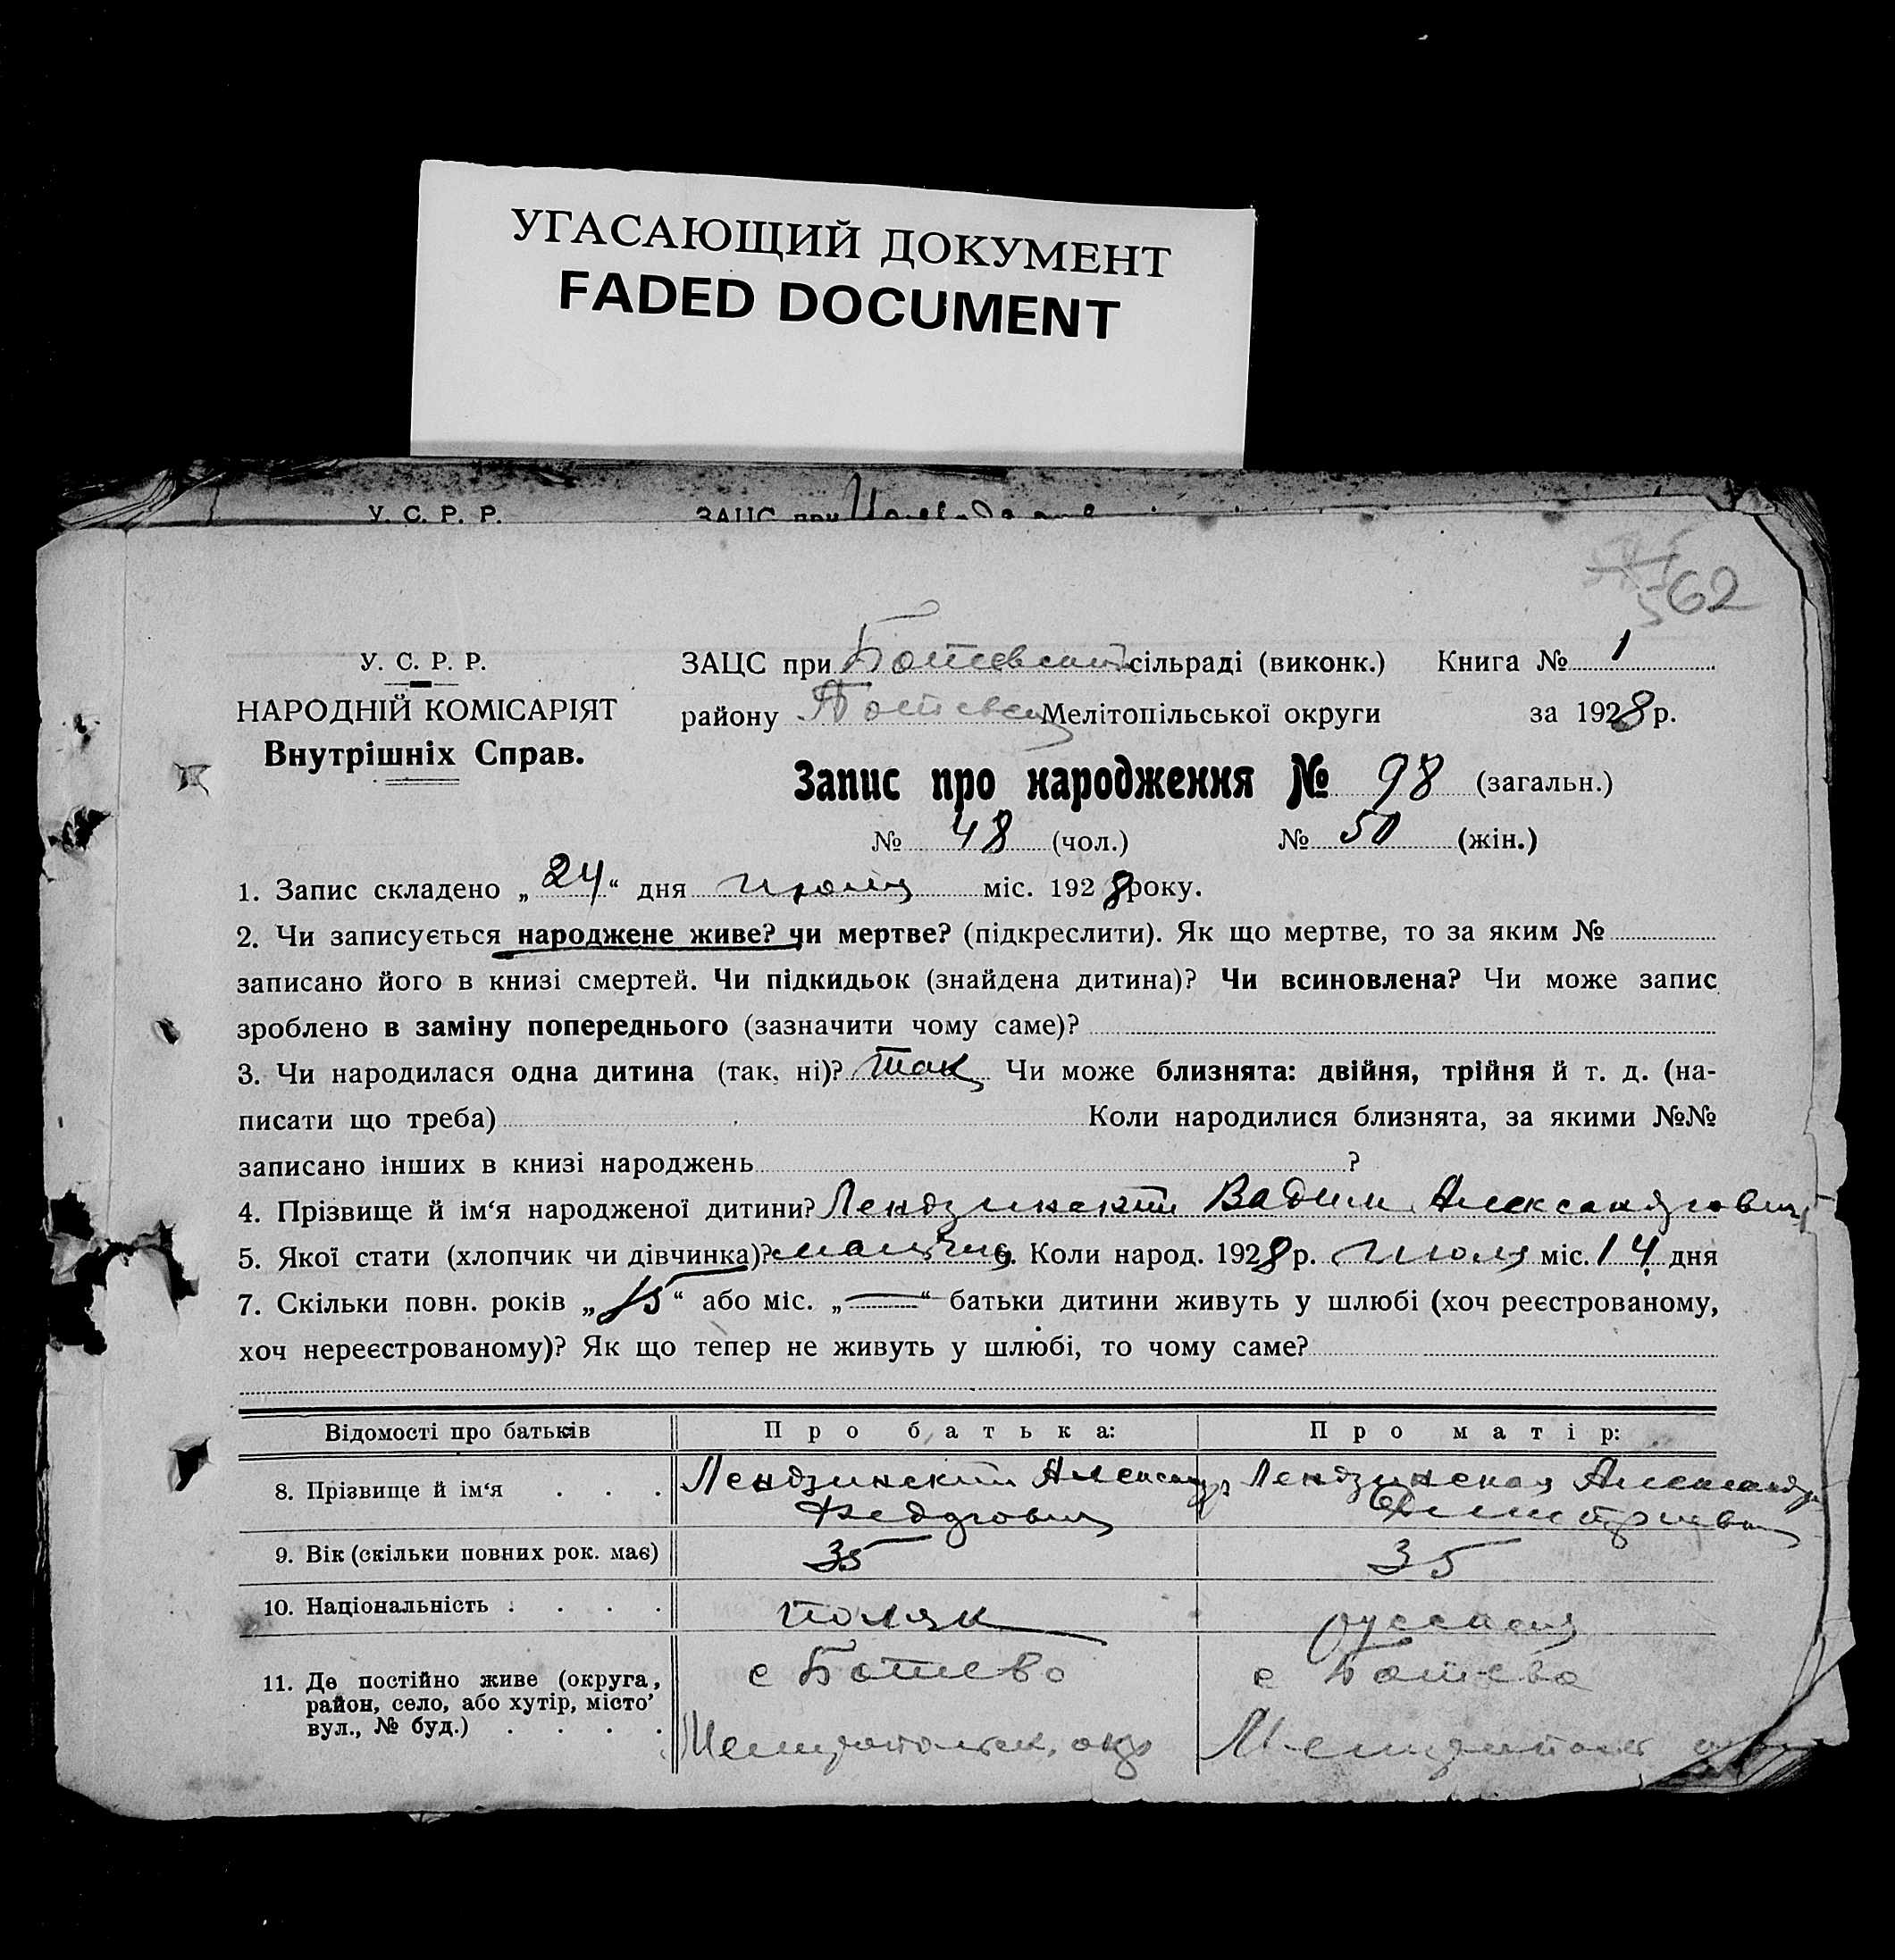 УГАСАЮЩИЙ ДОКУМЕНТ
FADED DOCUMENT
У. С. Р. Р. ЗАЦС при
562
У. С. Р. Р.
НАРОДНІЙ КОМІСАРІЯТ
Внутрішніх Справ.
ЗАЦС при Ботевский сільраді (виконк.) Книга № 1
району Ботевск Мелітопільської округи за 1928 р.
Запис про народження № 98 (загальн.)
№ 48 (чол.) № 50 (жін.)
1. Запис складено „24“ дня июля міс. 1928 року.
2. Чи записується народжене живе? чи мертве? (підкреслити). Як що мертве, то за яким №
записано його в книзі смертей. Чи підкидьок (знайдена дитина)? Чи всиновлена? Чи може запис
зроблено в заміну попереднього (зазначити чому саме)?
3. Чи народилася одна дитина (так, ні)? так Чи може близнята: двійня, трійня й т. д. (на-
писати що треба) Коли народилися близнята, за якими №№
записано інших в книзі народжень ?
4. Прізвище й ім‘я народженої дитини? Лендзинский Вадим Александрович
5. Якої стати (хлопчик чи дівчинка)? мальчик 6. Коли народ. 1928 р. июля міс. 14 дня
7. Скільки повн. років „15“ або міс. „—“ батьки дитини живуть у шлюбі (хоч реєстрованому,
хоч нереєстрованому)? Як що тепер не живуть у шлюбі, то чому саме?
Відомості про батьків Про батька: Про матір:
8. Прізвище й ім‘я . . . Лендзинский Александр Лендзинская Александра
Федорович Дмитриевна
9. Вік (скільки повних рок. має) 35 35
10. Національність . . . . поляк русская
11. Де постійно живе (округа,
район, село, або хутір, місто
вул., № буд.) . . . .
с Ботиево с Ботиево
Мелитопольск. окр Мелитопольск